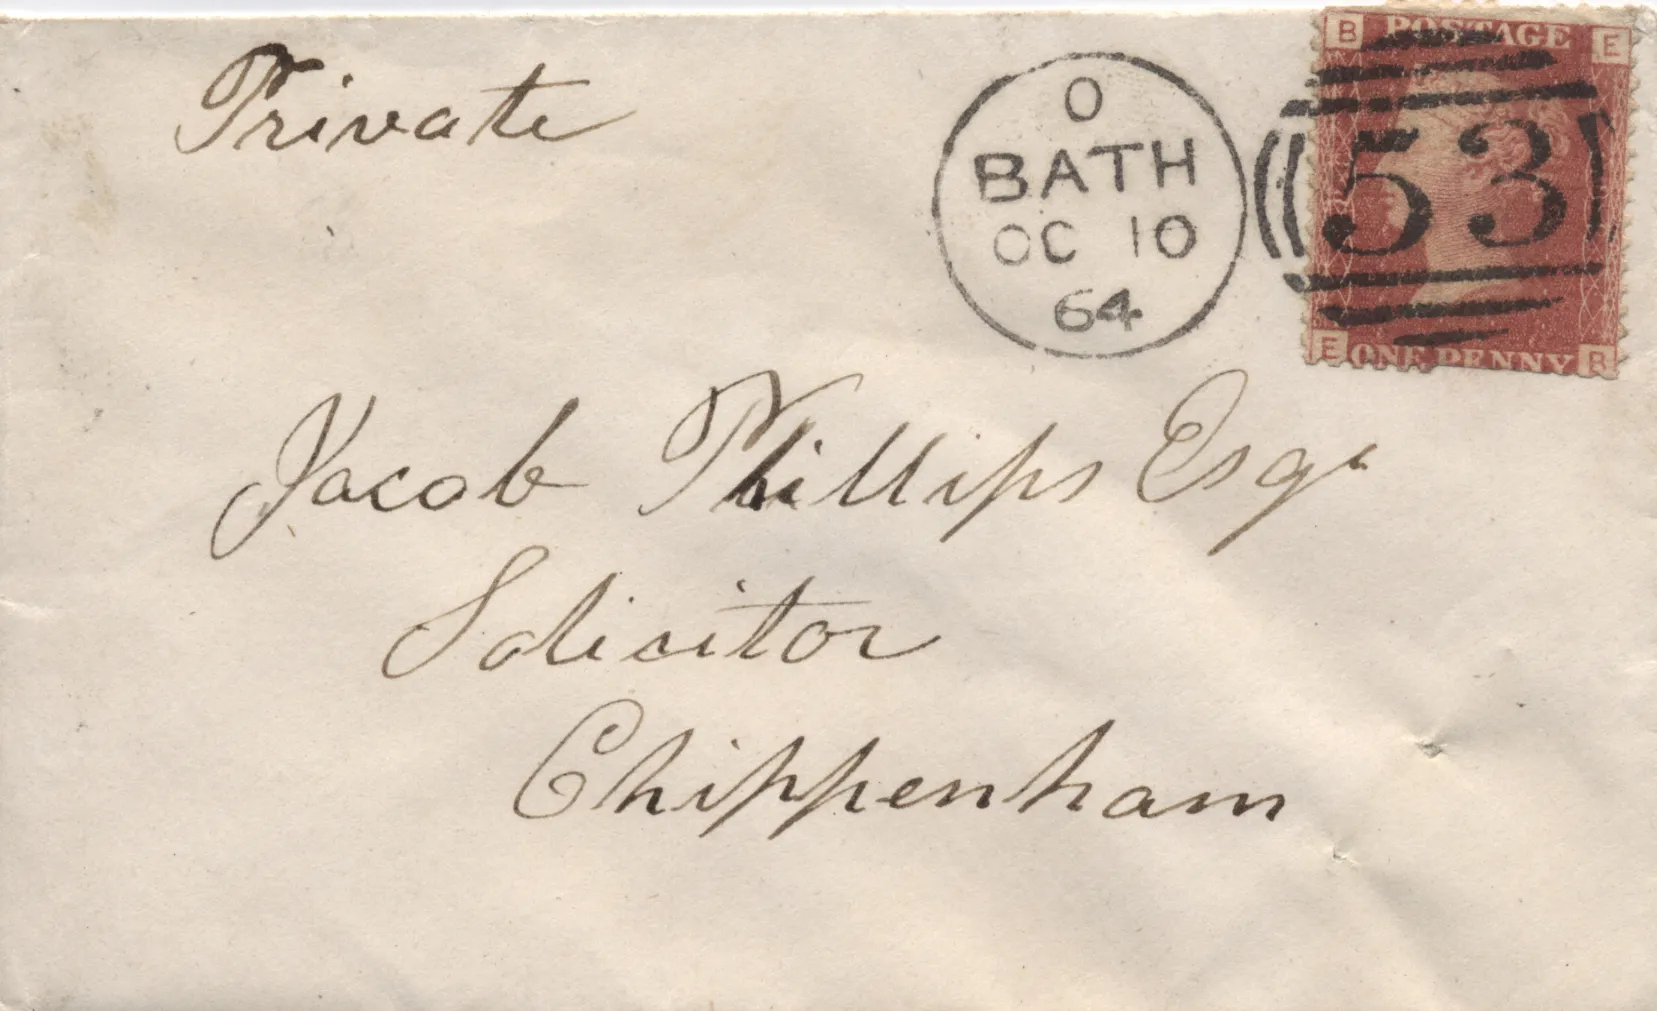 Private
O
BATH
OC 10
64
B POSTAGE E
53
E ONE PENNY B
Jacob Phillips Esqr
Solicitor
Chippenham